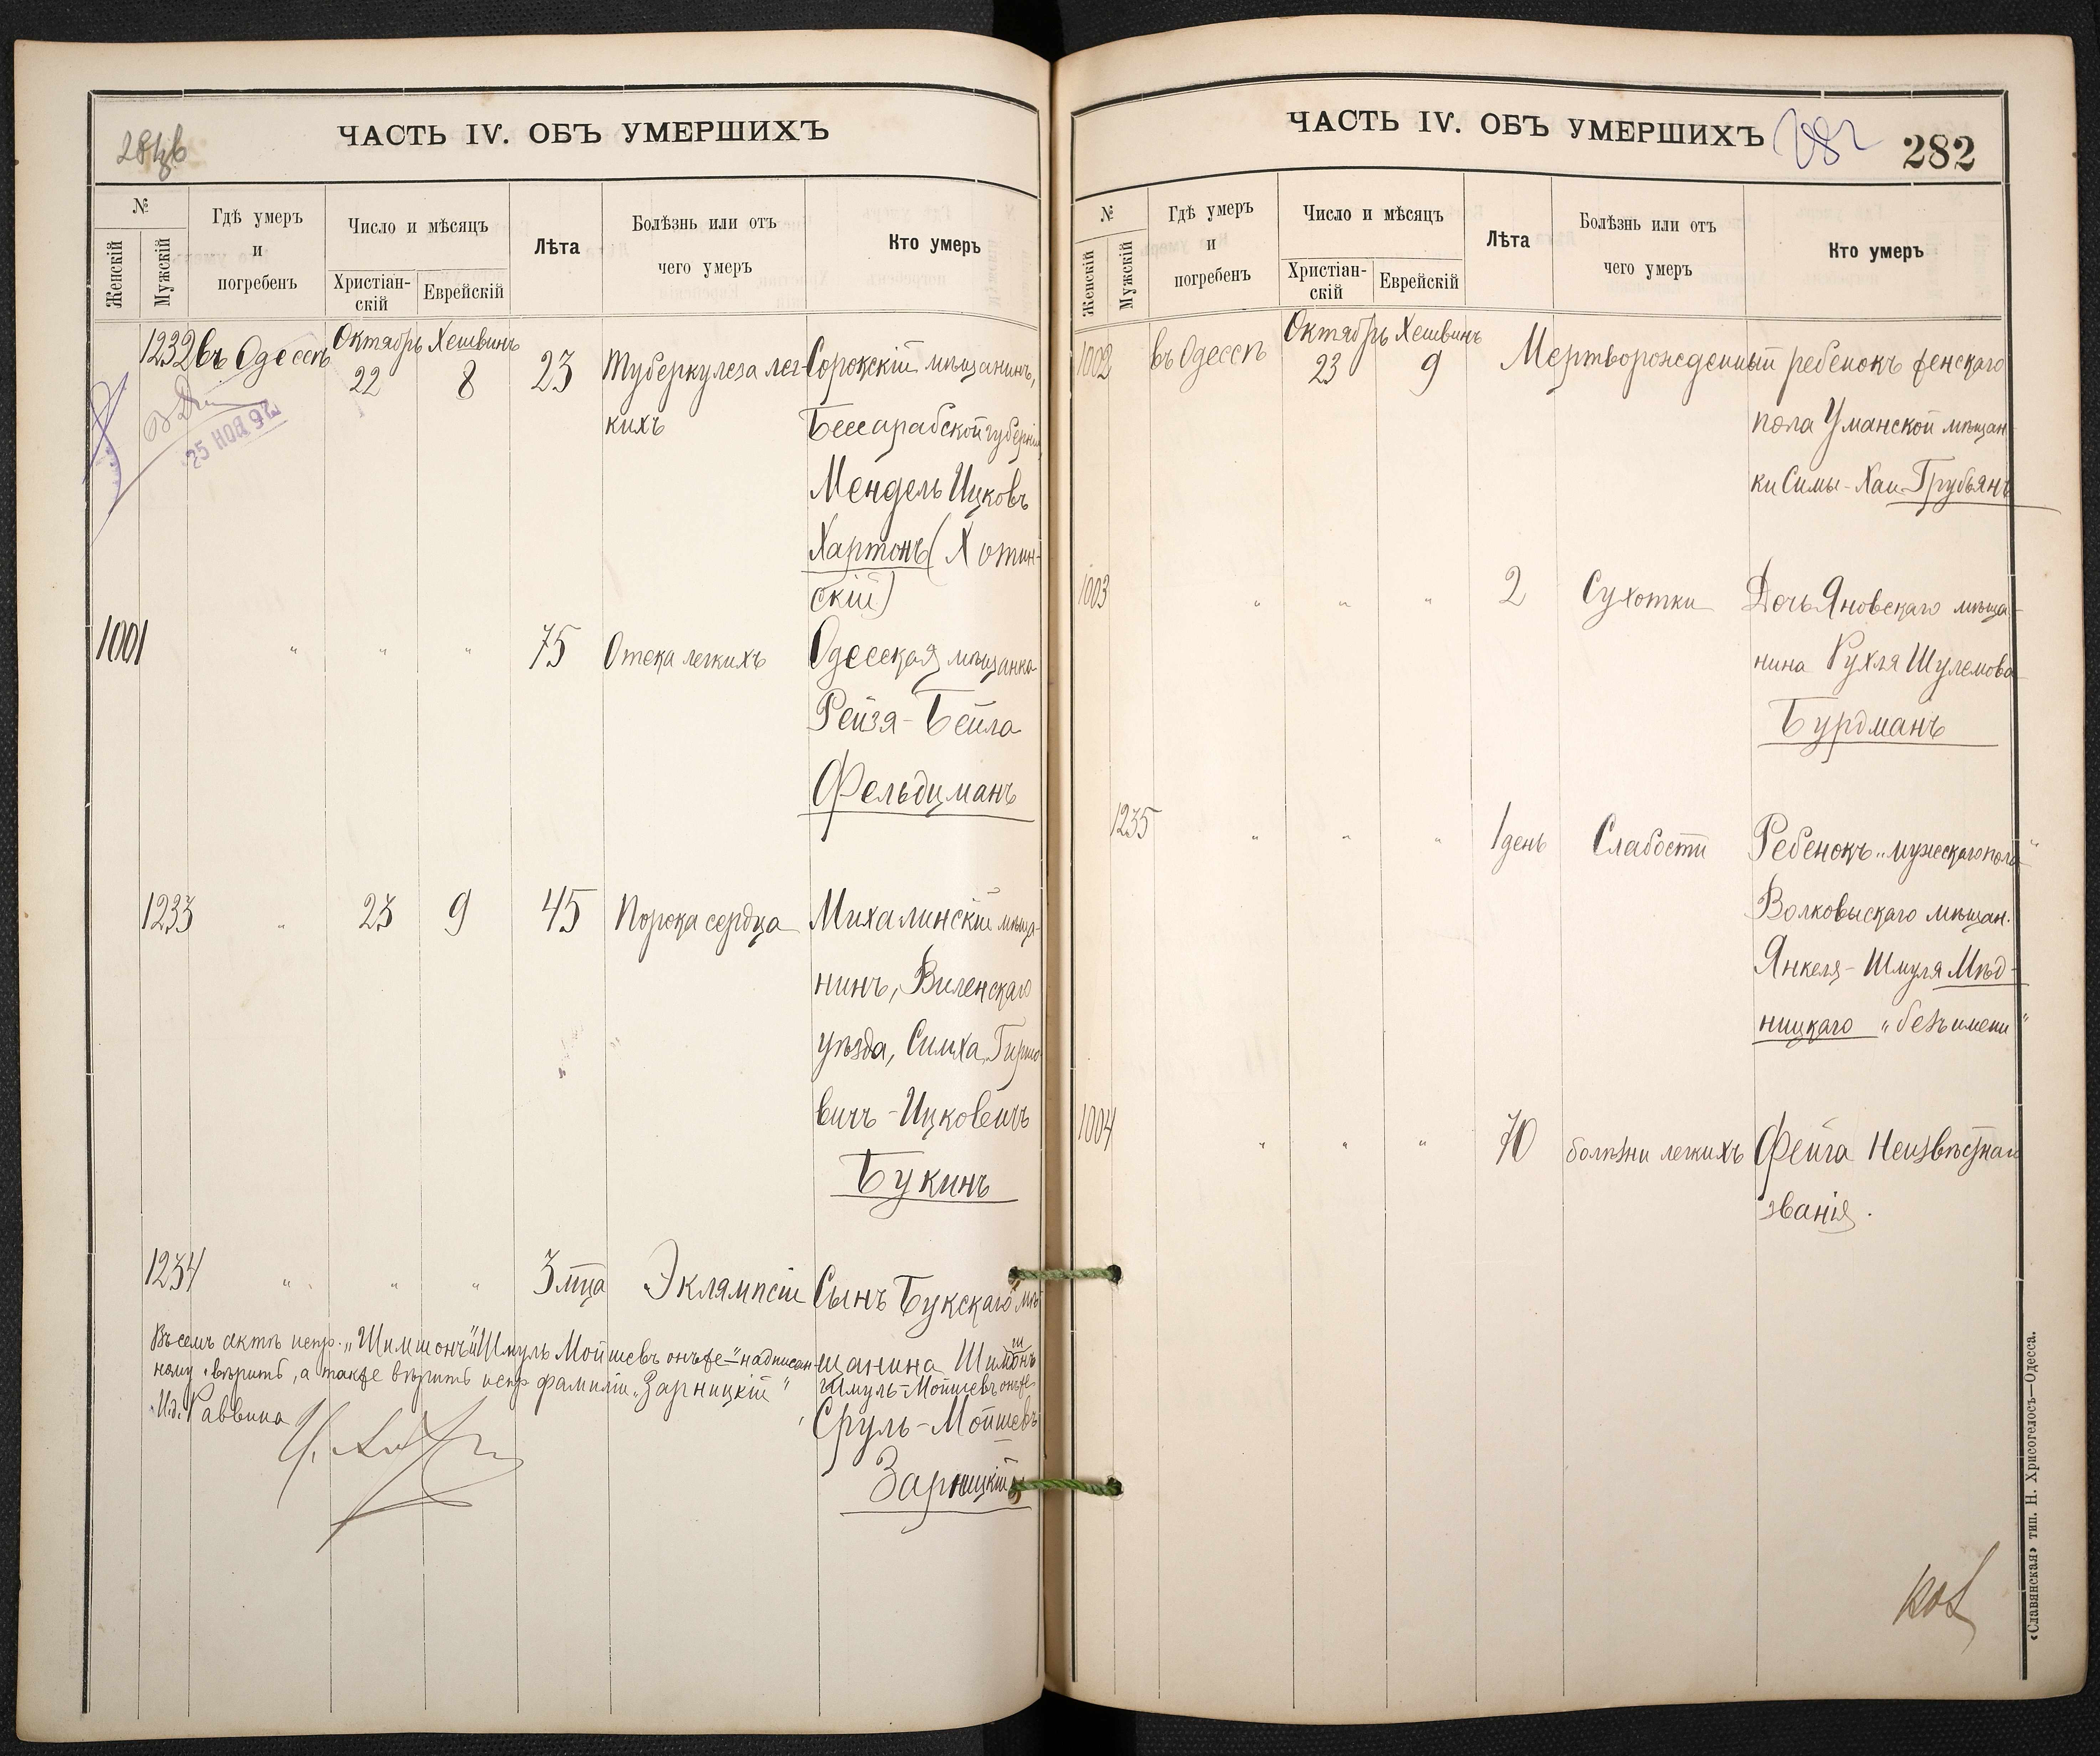 ЧАСТЬ IV. ОБЪ УМЕРШИХЪ
№
Женскій
Мужскій
Гдѣ умеръ
и
погребенъ
Число и мѣсяцъ
Христіан-
скій
Еврейскій
Лѣта
Болѣзнь или отъ
чего умеръ
Кто умеръ
1232 въ Одессѣ Октябрь 22 Хешвинъ 8 23 Туберкулеза лег- Сорокскій мѣщанинъ,
кихъ Бессарабской губерніи
Мендель Ицковъ
Хартонъ (Хотин-
скій)
25 НОЯ 92
1001 " " " 75 Отека легкихъ Одесская мѣщанка
Рейзя-Бейла
Фельдцманъ
1233 " 23 9 45 Порока сердца Михалинскій мѣща-
нинъ, Виленскаго
уѣзда, Симха Гиршо-
вичъ-Ицковичъ
Букинъ
1234 " " " 3 мца Эклямпсіи Сынъ Букскаго мѣ-
щанина Шимшонъ
Шмуль-Мойшевъ онъже
Сруль-Мойшевъ
Зарницкій
Въ семъ актѣ испр. „Шимшонъ" и „Шмуль Мойшевъ онъже" надписан-
ному вѣрить, а также вѣрить испр фамиліи „Зарницкій"
И.д. Раввина
ЧАСТЬ IV. ОБЪ УМЕРШИХЪ
282 282
№
Женскій
Мужскій
Гдѣ умеръ
и
погребенъ
Число и мѣсяцъ
Христіан-
скій
Еврейскій
Лѣта
Болѣзнь или отъ
чего умеръ
Кто умеръ
1002 въ Одессѣ Октябрь 23 Хешвинъ 9 Мертворожденный ребенокъ женскаго
пола Уманской мѣщан
ки Симы-Хаи Грубьянъ
1003 " " " 2 Сухотки Дочь Яновскаго мѣща-
нина Рухля Шулемова
Бурдманъ
1235 " " " 1 день Слабости Ребенокъ „мужескаго пола"
Волковыскаго мѣщан.
Янкеля-Шмуля Мѣд-
ницкаго „безъ имени"
1004 " " " 70 болѣзни легкихъ Фейга Неизвѣстнаго
званія.
«Славянская» тип. Н. Хрисогелосъ—Одесса.